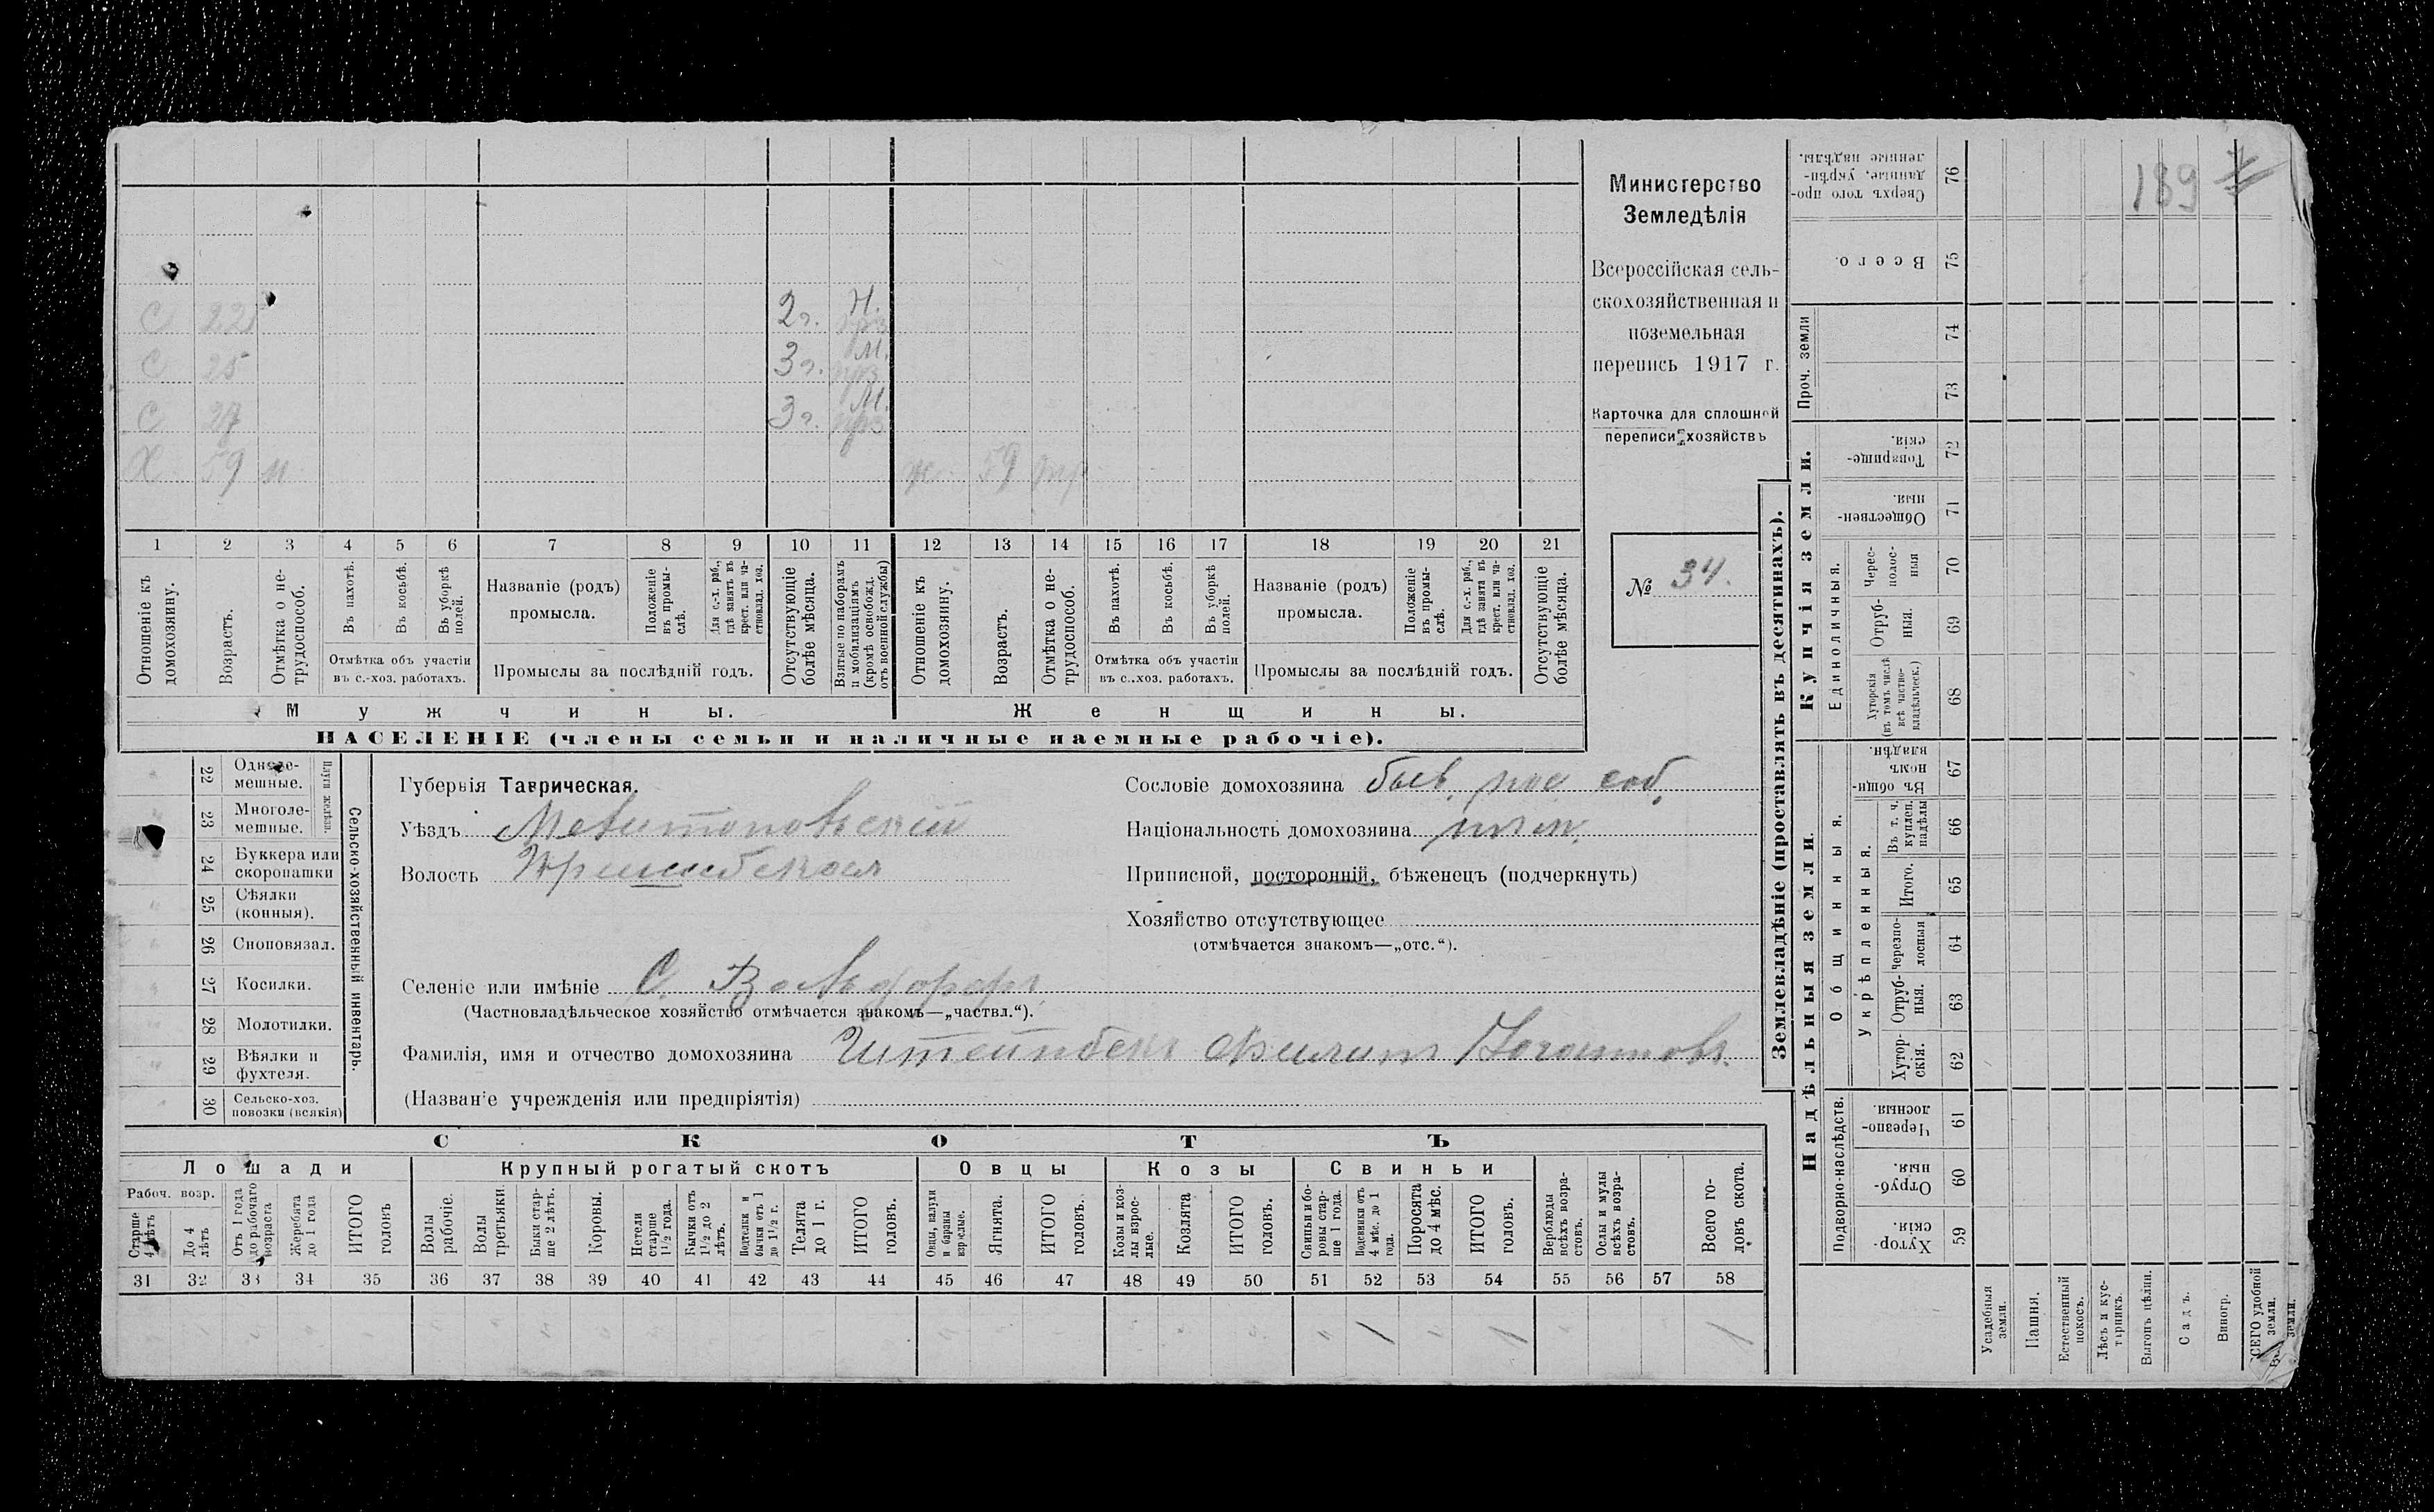 189
С 22 2г. Н.
С 25 3г. М.
С 27 3г. М.
Х 59 н ж 59
1 2 3 4 5 6 7 8 9 10 11 12 13 14 15 16 17 18 19 20 21
Отношеніе къ домохозяину.
Возрастъ.
Отмѣтка о не-трудоспособ.
Въ пахотѣ.
Въ косьбѣ.
Въ уборкѣ полей.
Отмѣтка объ участіи
въ с.-хоз. работахъ.
Названіе (родъ)
промысла.
Положеніе въ промы-слѣ.
Для с.-х. раб., гдѣ занятъ въ крест. или ча-стновлад. хоз.
Промыслы за послѣдній годъ.
Отсутствующіе болѣе мѣсяца.
Взятые по наборамъ и мобилизаціямъ (кромѣ освобожд. отъ военной службы)
Отношеніе къ домохозяину.
Возрастъ.
Отмѣтка о не-трудоспособ.
Въ пахотѣ.
Въ косьбѣ.
Въ уборкѣ полей.
Отмѣтка объ участіи
въ с.-хоз. работахъ.
Названіе (родъ)
промысла.
Положеніе въ промы-слѣ.
Для с.-х. раб., гдѣ занята въ крест. или ча-стновлад. хоз.
Промыслы за послѣдній годъ.
Отсутствующіе болѣе мѣсяца.
Мужчины.
Женщины.
НАСЕЛЕНІЕ (члены семьи и наличные наемные рабочіе).
Министерство
Земледѣлія
Всероссійская сель-
скохозяйственная и
поземельная
перепись 1917 г.
Карточка для сплошной
переписи хозяйствъ
№ 34.
Сельско-хозяйственный инвентарь.
Плуги желѣзн.
22 Одноле-мешные.
23 Многоле-мешные.
24 Буккера или скоропашки
25 Сѣялки (конныя).
26 Сноповязал.
27 Косилки.
28 Молотилки.
29 Вѣялки и фухтеля.
30 Сельско-хоз. повозки (всякія)
Губернія Таврическая.
Уѣздъ Мелитопольскій
Волость Пришибская
Сословіе домохозяина быв. пос соб.
Національность домохозяина нѣм.
Приписной, посторонній, бѣженецъ (подчеркнуть)
Хозяйство отсутствующее
(отмѣчается знакомъ—„отс.“).
Селеніе или имѣніе С. Вальдорфъ
(Частновладѣльческое хозяйство отмѣчается знакомъ—„частвл.“).
Фамилія, имя и отчество домохозяина Штейнбекъ Филипъ Іоганновъ.
(Названіе учрежденія или предпріятія)
СКОТЪ
Лошади
Крупный рогатый скотъ
Овцы
Козы
Свиньи
Рабоч. возр.
Старше 4 лѣтъ
До 4 лѣтъ
Отъ 1 года до рабочаго возраста
Жеребята до 1 года
ИТОГО головъ
Волы рабочіе.
Волы третьяки.
Быки стар-ше 2 лѣтъ.
Коровы.
Нетели старше 1½ года.
Бычки отъ 1½ до 2 лѣтъ.
Подтелки и бычки отъ 1 до 1½ г.
Телята до 1 г.
ИТОГО головъ.
Овцы, валухи и бараны взрослые.
Ягнята.
ИТОГО головъ.
Козы и коз-лы взрос-лые.
Козлята
ИТОГО головъ.
Свиньи и бо-ровы стар-ше 1 года.
Подсвинки отъ 4 мѣс. до 1 года.
Поросята до 4 мѣс.
ИТОГО головъ.
Верблюды всѣхъ возра-стовъ.
Ослы и мулы всѣхъ возра-стовъ.
Всего го-ловъ скота.
31 32 33 34 35 36 37 38 39 40 41 42 43 44 45 46 47 48 49 50 51 52 53 54 55 56 57 58
Землевладѣніе (проставлять въ десятинахъ).
Надѣльныя земли.
Купчія земли.
Проч. земли
Подворно-наслѣдств.
Общинныя.
Укрѣпленныя.
Единоличныя.
Хутор-скія. 59
Отруб-ныя. 60
Черезпо-лосныя. 61
Хутор-скія. 62
Отруб-ныя. 63
Черезпо-лосныя 64
Итого. 65
Въ т. ч. куплен. надѣлы 66
Въ общи-номъ владѣн. 67
Хуторскія (въ томъ числѣ всѣ частно-владѣльческ.) 68
Отруб-ныя. 69
Черес-полос-ныя 70
Обществен-ныя. 71
Товарище-скія. 72
73
74
Всего. 75
Сверхъ того про-данные, укрѣп-ленные надѣлы. 76
Усадебныя земли.
Пашня.
Естественный покосъ.
Лѣсъ и кус-тарникъ.
Выгонъ цѣлин.
Садъ.
Виногр.
ВСЕГО удобной земли.